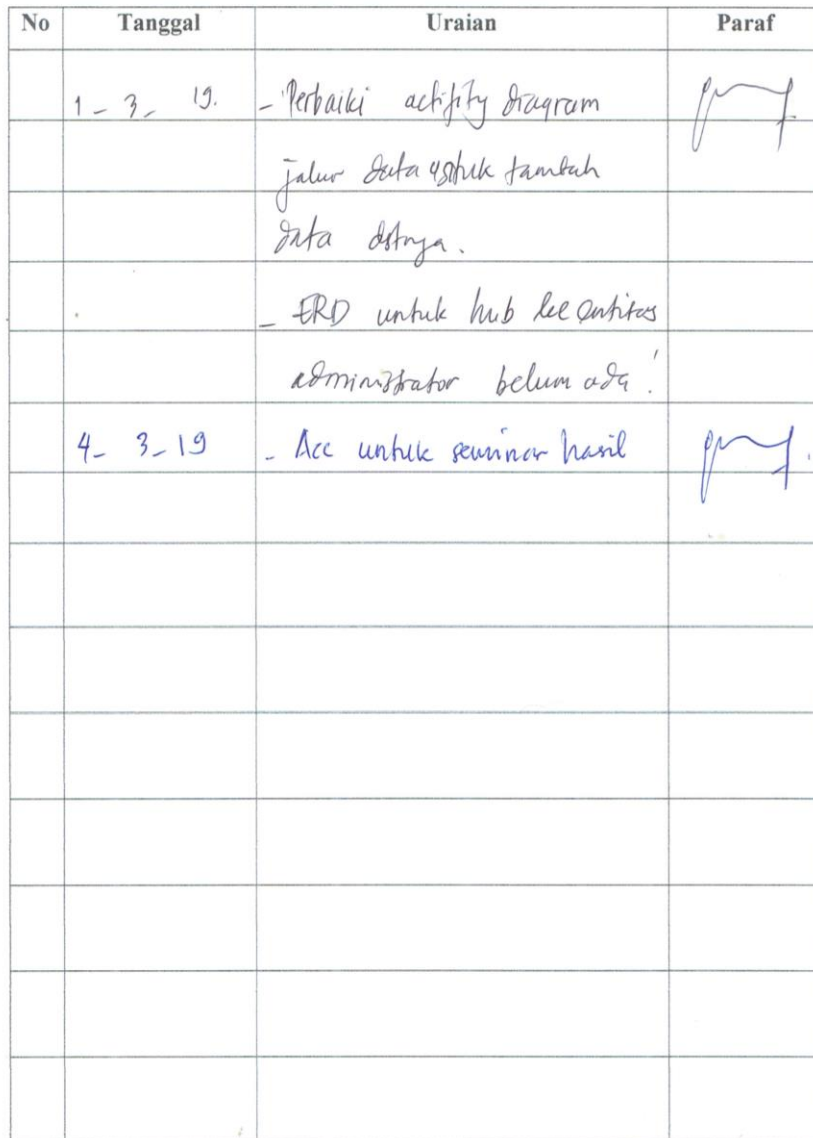 No Tanggal Uraian Paraf
1 - 3 - 19. - Perbaiki actifity diagram
jalur data untuk tambah
data dstnya.
- ERD untuk hub ke entitas
administrator belum ada!
4 - 3 - 19 - Acc untuk seminar hasil